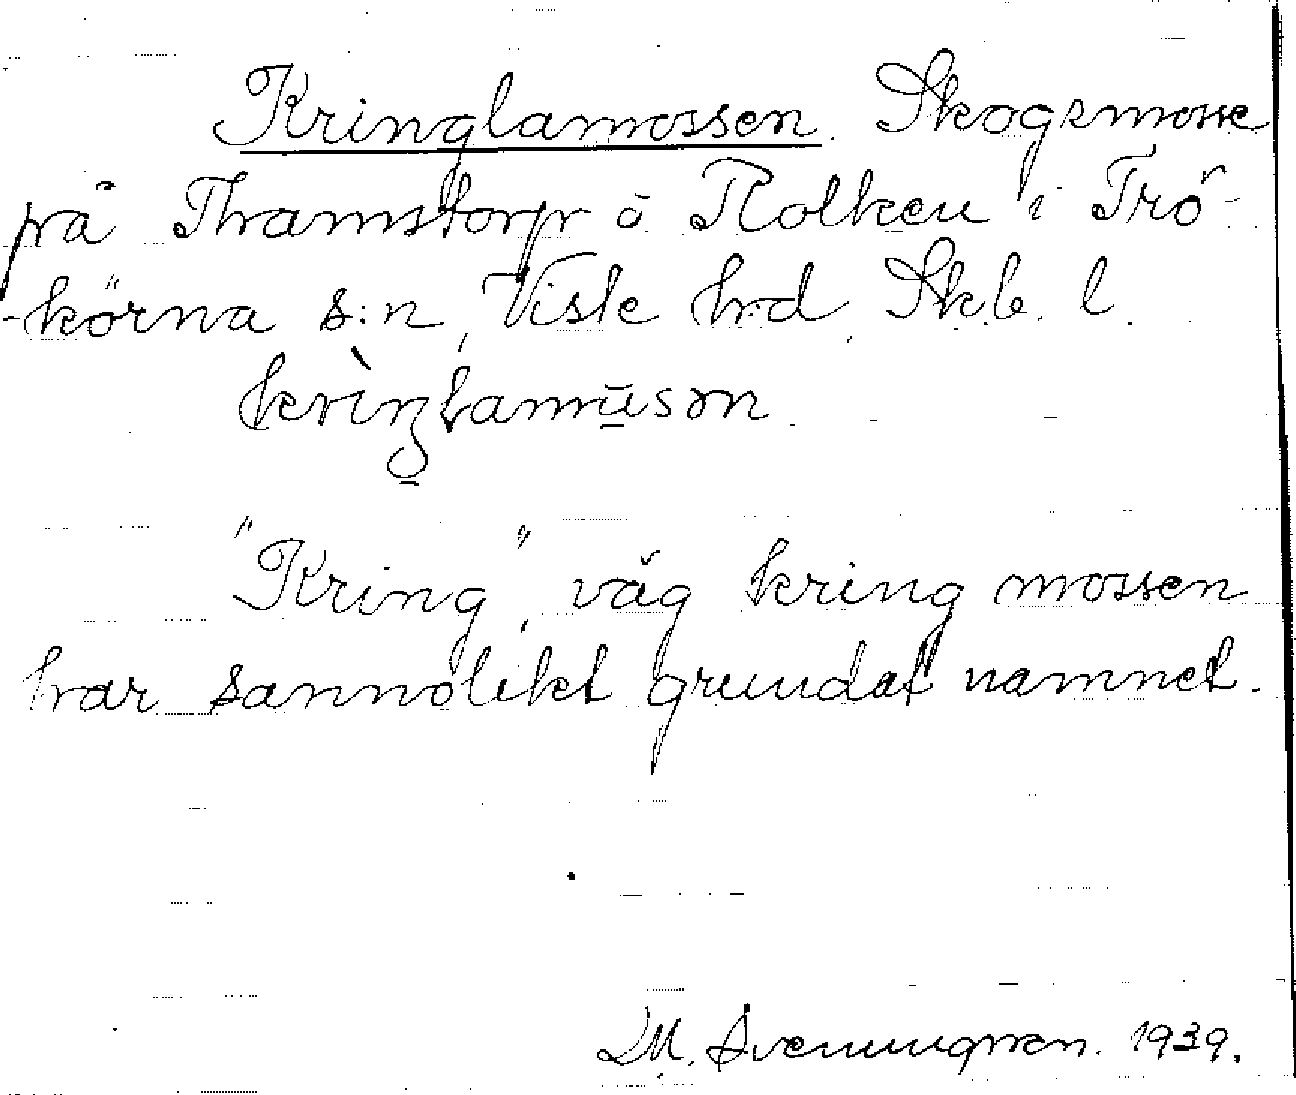 Kringlamossen. Skogsmosse
på Thamstorp å Rolken i Trö-
-körna s:n, Viste hrd, Skb. l.
"Kring", väg kring mossen
har sannolikt grundat namnet.
M. Svenungsson. 1939.